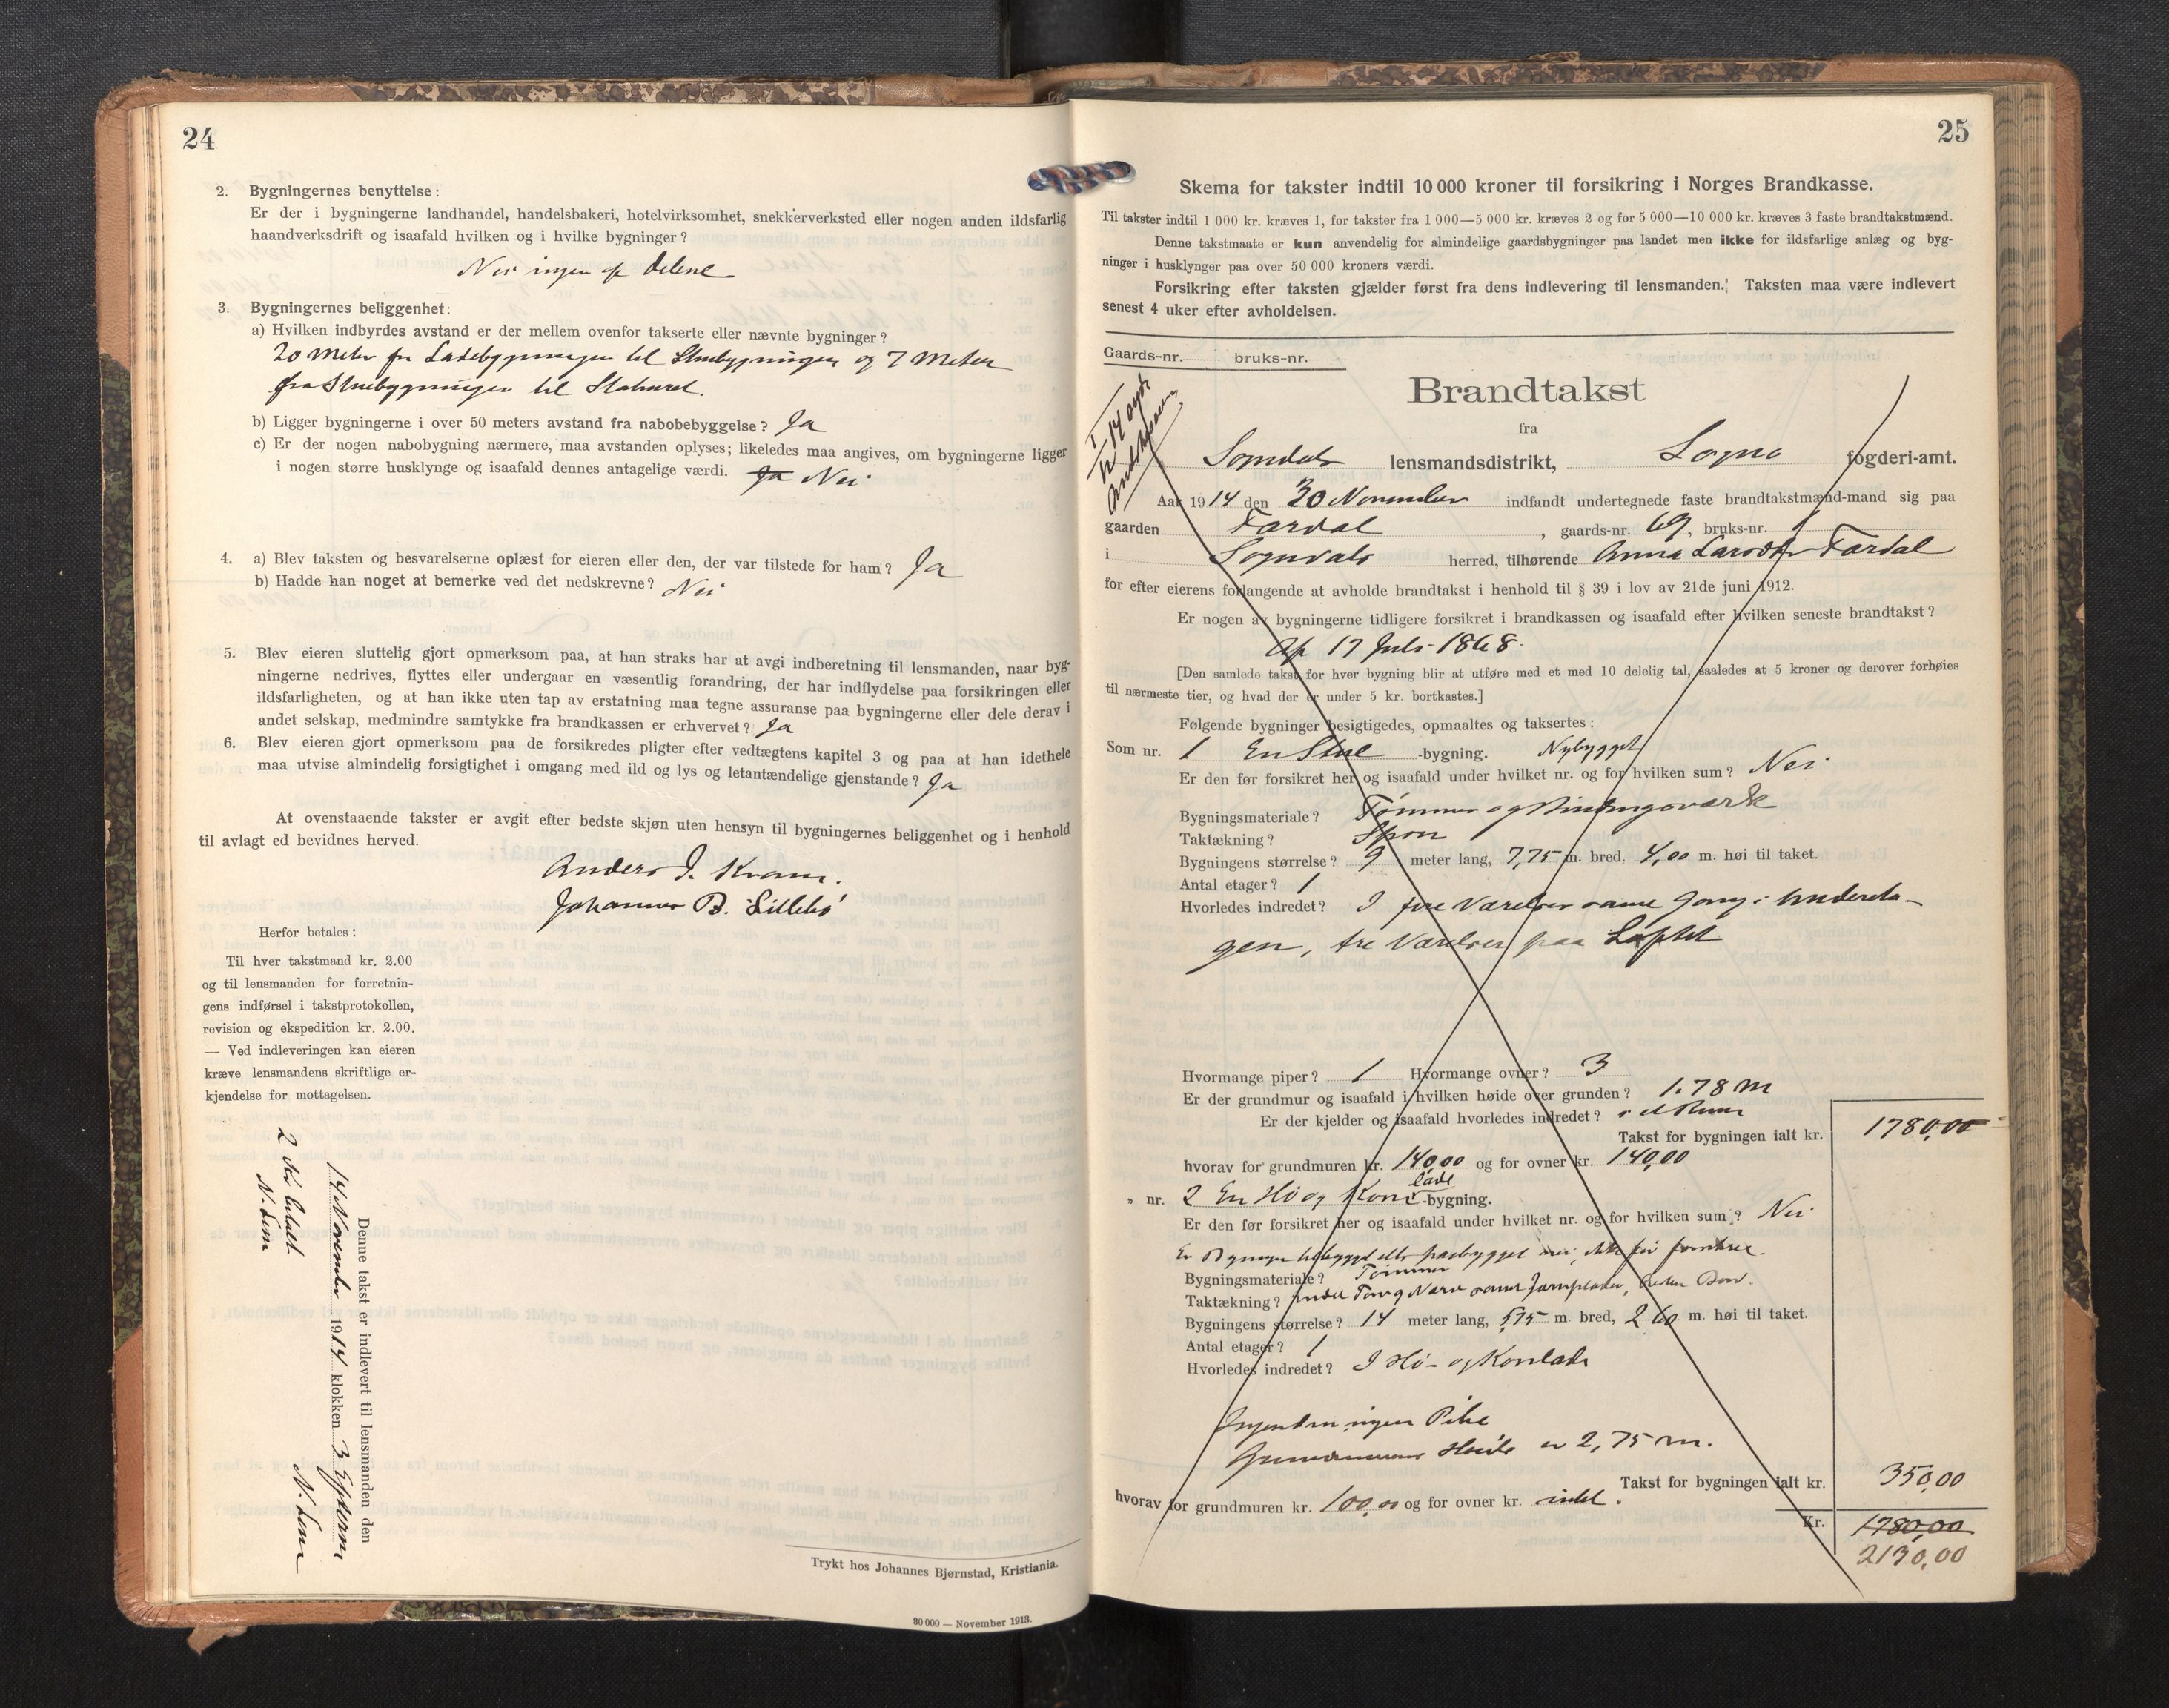 24
2. Bygningernes benyttelse:
Er der i bygningerne landhandel, handelsbakeri, hotelvirksomhet, snekkerverksted eller nogen anden ildsfarlig
haandverksdrift og isaafald hvilken og i hvilke bygninger?
Nei ingen af delene
3. Bygningernes beliggenhet:
a) Hvilken indbyrdes avstand er der mellem ovenfor takserte eller nævnte bygninger?
20 Meter fra Ladebygningen til Stuebygningen og 7 Meter
fra Stuebygningen til Staburet.
b) Ligger bygningerne i over 50 meters avstand fra nabobebyggelse? Ja
c) Er der nogen nabobygning nærmere, maa avstanden oplyses; likeledes maa angives, om bygningerne ligger
i nogen større husklynge og isaafald dennes antagelige værdi. Ja Nei
4. a) Blev taksten og besvarelserne oplæst for eieren eller den, der var tilstede for ham? Ja
b) Hadde han noget at bemerke ved det nedskrevne? Nei
5. Blev eieren sluttelig gjort opmerksom paa, at han straks har at avgi indberetning til lensmanden, naar byg-
ningerne nedrives, flyttes eller undergaar en væsentlig forandring, der har indflydelse paa forsikringen eller
ildsfarligheten, og at han ikke uten tap av erstatning maa tegne assuranse paa bygningerne eller dele derav i
andet selskap, medmindre samtykke fra brandkassen er erhvervet? Ja
6. Blev eieren gjort opmerksom paa de forsikredes pligter efter vedtægtens kapitel 3 og paa at han idethele
maa utvise almindelig forsigtighet i omgang med ild og lys og letantændelige gjenstande? Ja
At ovenstaaende takster er avgit efter bedste skjøn uten hensyn til bygningernes beliggenhet og i henhold
til avlagt ed bevidnes herved.
Anders J. Kvam.
Johannes B. Lillebö
Herfor betales:
Til hver takstmand kr. 2.00
og til lensmanden for forretnin-
gens indførsel i takstprotokollen,
revision og ekspedition kr. 2.00.
— Ved indleveringen kan eieren
kræve lensmandens skriftlige er-
kjendelse for mottagelsen.
Denne takst er indlevert til lensmanden den
14 November 1914 klokken 3 Efterm
N. Lem
2 Kr betalt.
N. Lem
Trykt hos Johannes Bjørnstad, Kristiania.
30 000 — November 1913.
25
Skema for takster indtil 10 000 kroner til forsikring i Norges Brandkasse.
Til takster indtil 1 000 kr. kræves 1, for takster fra 1 000—5 000 kr. kræves 2 og for 5 000—10 000 kr. kræves 3 faste brandtakstmænd.
Denne takstmaate er kun anvendelig for almindelige gaardsbygninger paa landet men ikke for ildsfarlige anlæg og byg-
ninger i husklynger paa over 50 000 kroners værdi.
Forsikring efter taksten gjælder først fra dens indlevering til lensmanden. Taksten maa være indlevert
senest 4 uker efter avholdelsen.
Gaards-nr. bruks-nr.
Brandtakst
fra
Sogndals lensmandsdistrikt, Sogns fogderi-amt.
Aar 1914 den 30 November indfandt undertegnede faste brandtakstmænd-mand sig paa
gaarden Fardal, gaards-nr. 69, bruks-nr. 1
i Sogndals herred, tilhørende Anna Larsdtr Fardal
for efter eierens forlangende at avholde brandtakst i henhold til § 39 i lov av 21de juni 1912.
Er nogen av bygningerne tidligere forsikret i brandkassen og isaafald efter hvilken seneste brandtakst?
Af 17 Juli 1868.
[Den samlede takst for hver bygning blir at utføre med et med 10 delelig tal, saaledes at 5 kroner og derover forhøies
til nærmeste tier, og hvad der er under 5 kr. bortkastes.]
Følgende bygninger besigtigedes, opmaaltes og taksertes:
Som nr. 1 En Stue -bygning. Nybygget
Er den før forsikret her og isaafald under hvilket nr. og for hvilken sum? Nei
Bygningsmateriale? Tømmer og Bindingsværk
Taktækning? Spon
Bygningens størrelse? 9 meter lang, 7,75 m. bred, 4,00 m. høi til taket.
Antal etager? 1
Hvorledes indredet? I fire Værelser samt Gang i Undereta-
gen, tre Værelser paa Loftet
Hvormange piper? 1 Hvormange ovner? 3
Er der grundmur og isaafald i hvilken høide over grunden? 1.78 m
Er der kjelder og isaafald hvorledes indredet? i et Rum
Takst for bygningen ialt kr. 1780,00
hvorav for grundmuren kr. 140,00 og for ovner kr. 140,00
„ nr. 2 En Hö og Korn lade -bygning.
Er den før forsikret her og isaafald under hvilket nr. og for hvilken sum? Nei
Bygningsmateriale? Tømmer
Taktækning? under Torv og Næver samt Jernplader,
Bygningens størrelse? 14 meter lang, 5,75 m. bred, 2,60 m. høi til taket.
Antal etager? 1
Hvorledes indredet? I Hö- og Kornlade
ingen Pibe
Grundmurens Høide er 2,75 m.
Takst for bygningen ialt kr. 350,00
hvorav for grundmuren kr. 100,00 og for ovner kr. intet.
Kr. 1780,00
2130,00